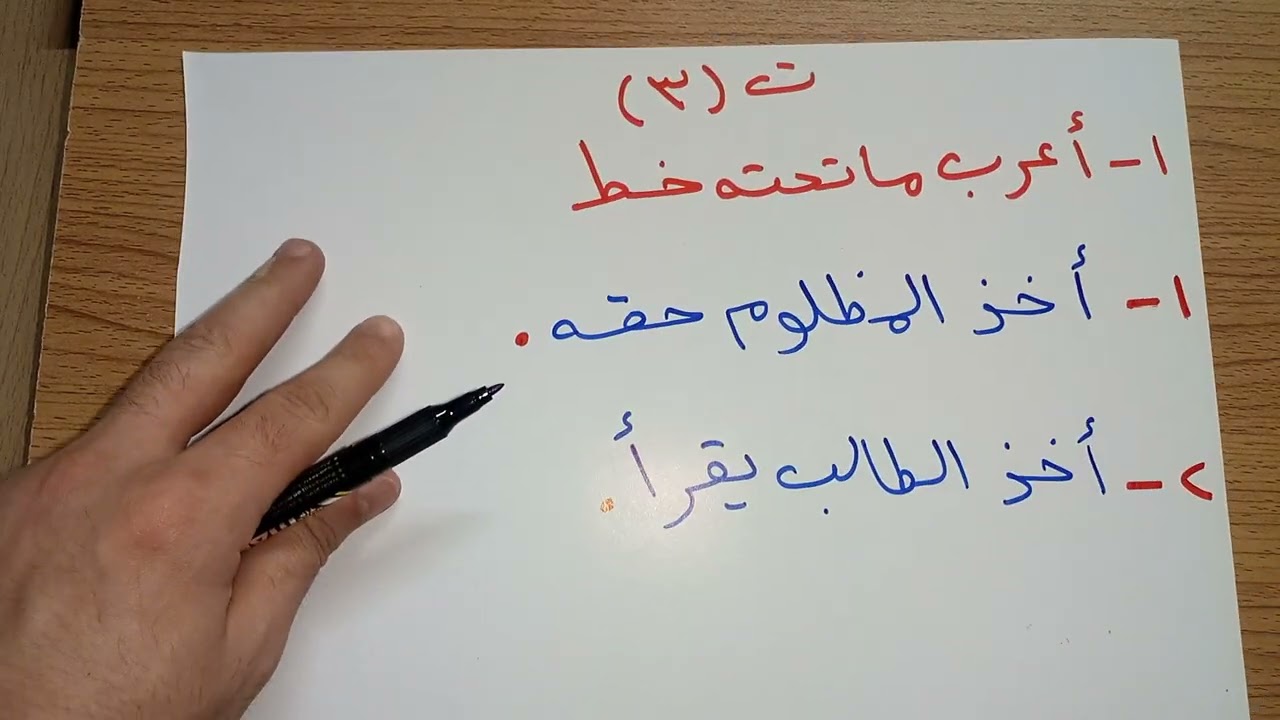 ت (٣)
١- أعرب ما تحته خط
١- أخذ المظلوم حقه .
٢- أخذ الطالب يقرأ .